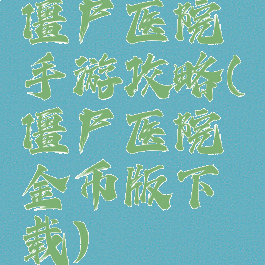 僵尸医院
手游攻略(
僵尸医院
金币版下
载)